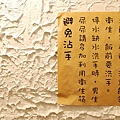 衛生，飯前要洗手。
停水缺水洗手時，男生
尿尿請多加利用衛生筷
避免沾手